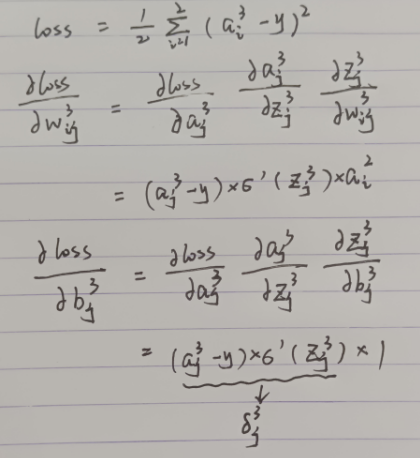 loss = 1/2 ∑_{i=1}^{2} (a_i^3 - y)^2
∂loss/∂w_{ij}^3 = ∂loss/∂a_j^3 ∂a_j^3/∂z_j^3 ∂z_j^3/∂w_{ij}^3
= (a_j^3 - y) × σ'(z_j^3) × a_i^2
∂loss/∂b_j^3 = ∂loss/∂a_j^3 ∂a_j^3/∂z_j^3 ∂z_j^3/∂b_j^3
= (a_j^3 - y) × σ'(z_j^3) × 1
↓
δ_j^3